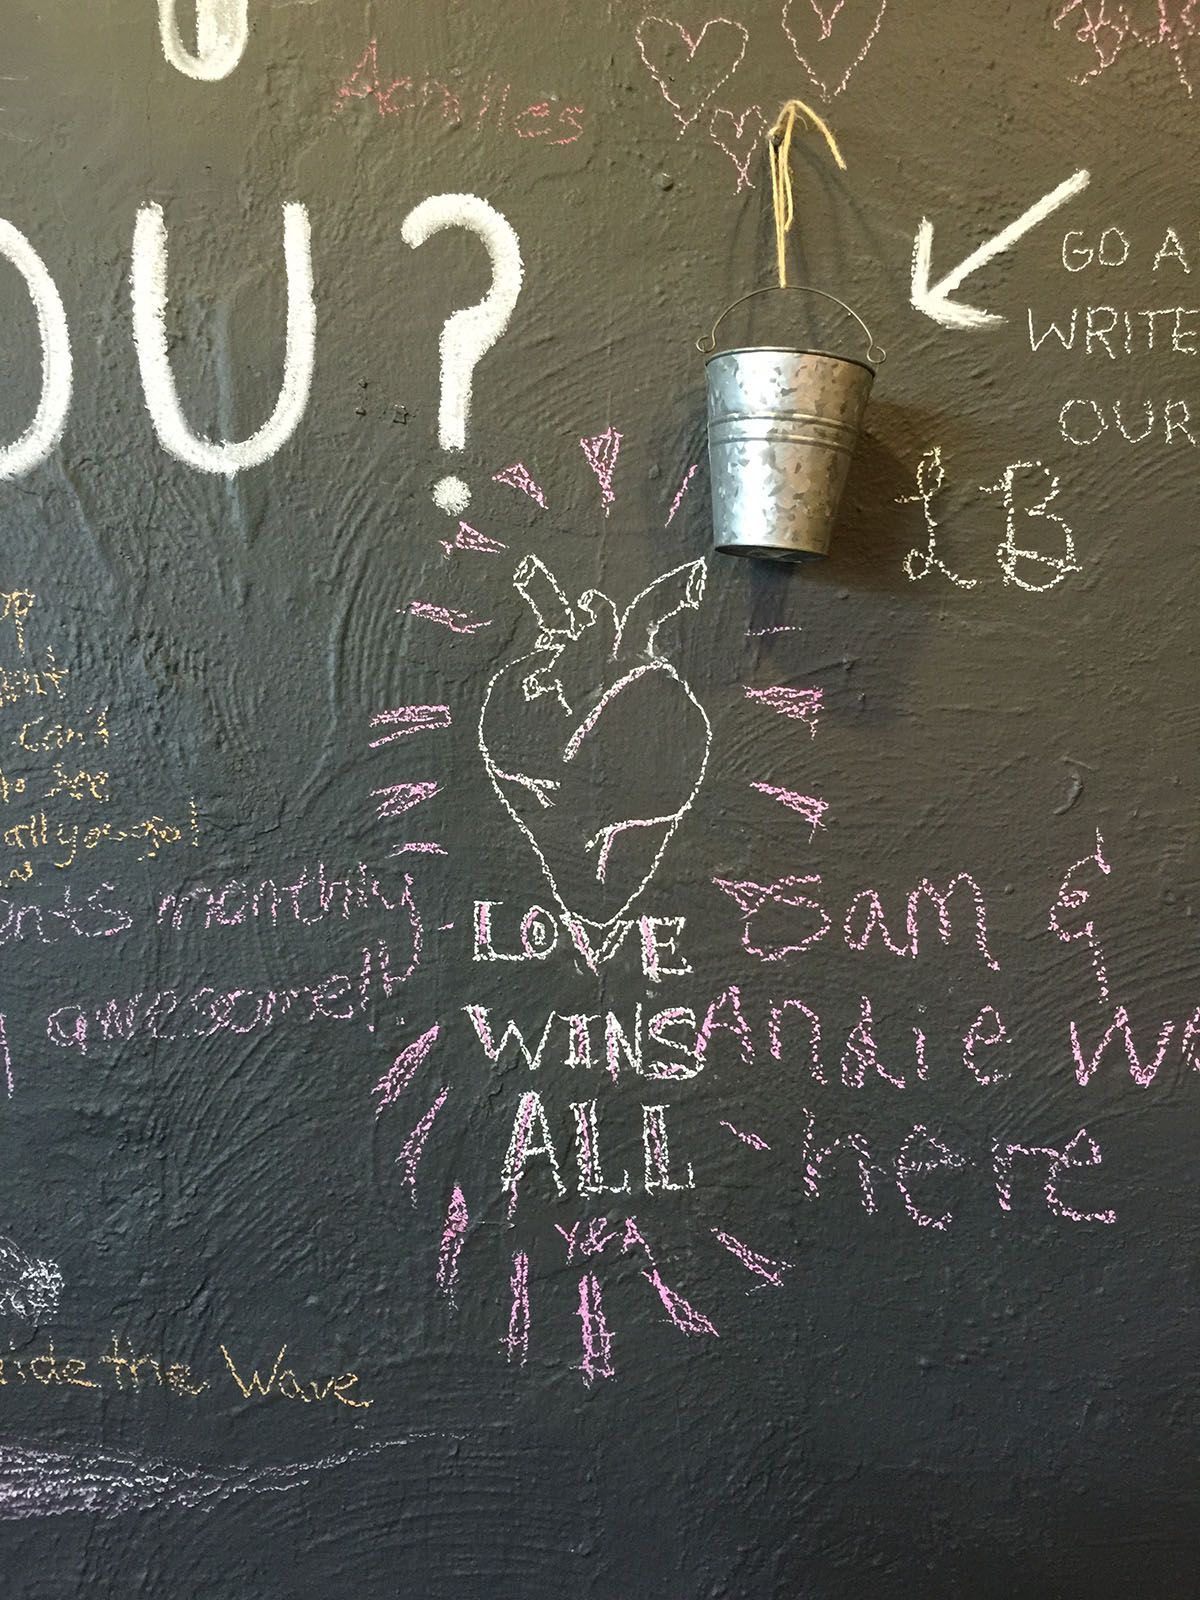 Achilles
OU?
GO A
WRITE
OUR
LB
can't
to see
all you go!
monthly
awesome!!
LOVE
WINS
ALL
YEA
Sam &
Andie We
here
ride the Wave